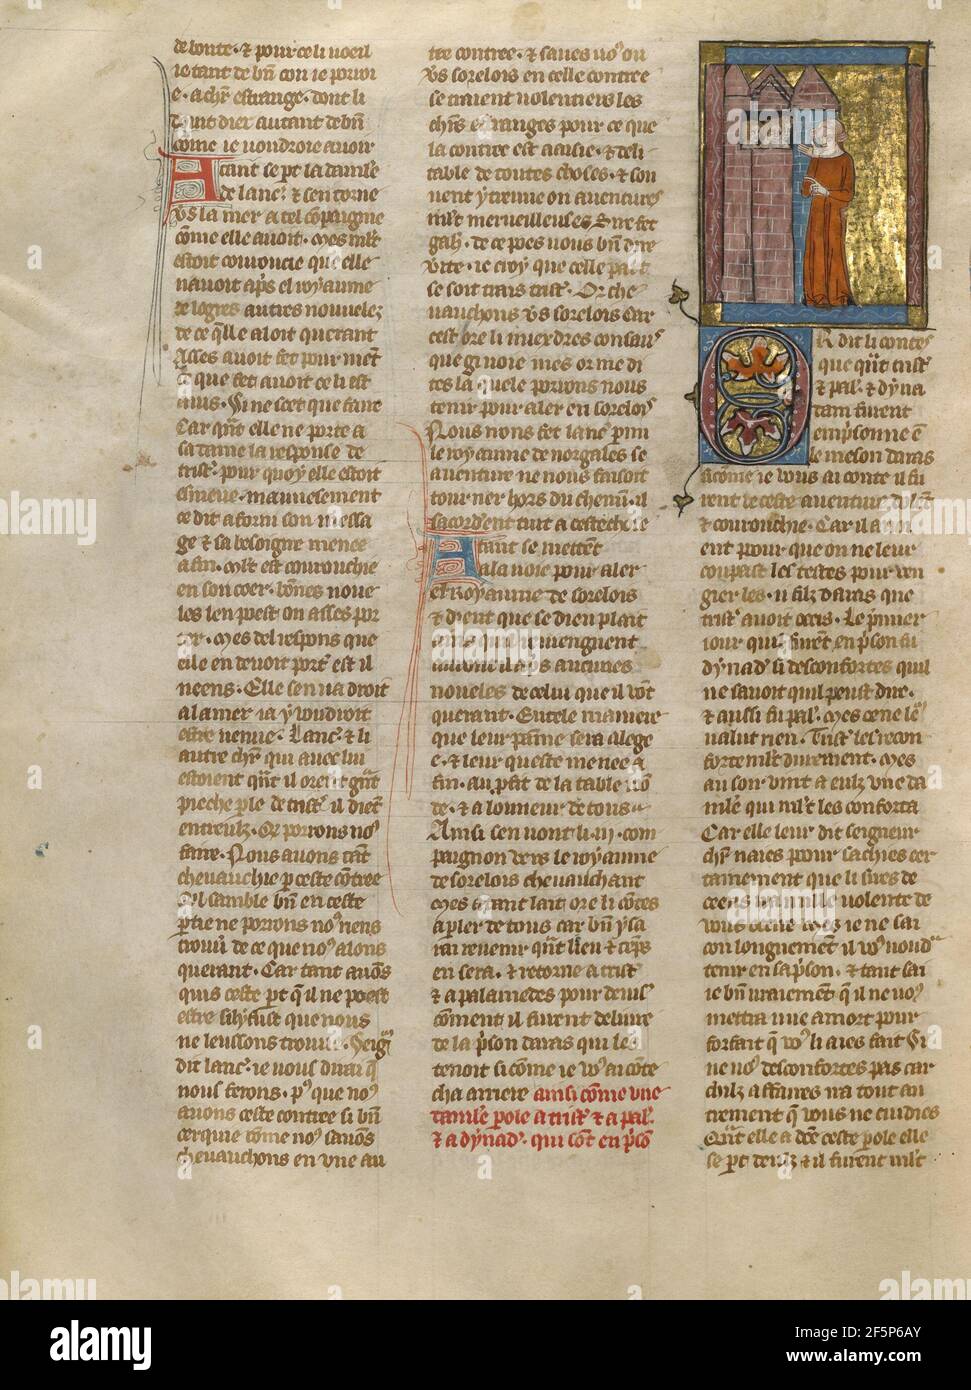 de bonte. & pour ce li voeil
ie tant de bn̄ con ie pouoi
e. a chr̄ estrange. dont li
autant de bn̄
cōme ie uoudroie auoir
A tant se pt la damise
de lanc. & sen torne
v̄s la mer a tel cōpaignie
cōme elle auoit. mes mlt
estoit courouciee que elle
nauoit aps el royaume
de logres autres nouueles
de ce q̄lle aloit querant
Asses auoit fet pour ment
ce que fet auoit ce li est
auis. Si ne scet que faire
Car qn̄t elle ne porte a
sa dame la response de
trist. pour quoy elle estoit
esmeue. mauuesement
ce dit a forni son messa
ge & sa besoigne menee
a fin. mlt est courouchie
en son coer. bōnes nouue
les len poest on asses por
ter. mes del respons que
elle en deuoit port est il
neens. Elle sen ua droit
a la mer ia y uoudroit
estre uenue. Lanc. & li
autre chr̄ qui auec lui
estoient qn̄t il oient
pieche ple de trist. il dient
entreulz. Or porrons nos
faire. Nous auons tāt
cheuauchie p ceste cōtree
Qil samble bn̄ en ceste
ptie ne porrons nos nens
trouū de ce que nos alons
querant. Car tant auōs
quis ceste pt q̄ il ne poest
estre sil y fust que nous
ne leussons trouue. Seign̄
dit lanc. ie uous dirai q̄
nous ferons. ps que nos
auons ceste contree si bn̄
cerquie cōme nos sauōs
cheuauchons en vne au
tre contree. & saues uos ou
v̄s sorelois en celle contre
se traient uolentiers les
chr̄s estranges pour ce que
la contree est aaisie. & deli
table de toutes choses. & sou
uent y treuue on auentures
mlt merueilleuses Sire fet
gah. de ce poes uous bn̄ dire
verite. ie croy que celle part
se soit trais trist. Or che
uauchons v̄s sorelois Car
cest ore li miudres consaus
que gi uoie mes or me di
tes la quele porions nous
tenir pour aler en sorelois
Nous nous fet lanc. p mi
le royaume de norgales se
auenture ne nous faisoit
tourner hors du chemī. il
sacordent tuit a ceste chose
A tant se mettent
a la uoie pour aler
el Royaume de sorelois
& dient que se dieu plait
reuengnent
aucunes
noueles de celui que il uōt
querant. En tele maniere
que leur paine sera alege
e. & leur queste menee a
fin. au pfit de la table rōn
de. & a lonneur de tous
Ainsi sen uont li .iii. com
paignon vers le royaume
de sorelois cheuauchant
Mes a tant lait ore li cōtes
a pler de tous car bn̄ y sa
rai reuenir qn̄t lieu & tēps
en sera. & retorne a trist
& a palamedes pour deuis
cōment il furent deliure
de la pson daras qui les
tenoit si cōme ie uos ai cōte
cha arriere ainsi cōme vne
damise parole a trist & a pal.
& a dynad. qui sōt en psō
Or dit li contes
que qn̄t trist
& pal. & dyna
dam furent
empsonne ē
le meson daras
si cōme ie uous ai conte il fu
rent de ceste auenture dolēt
& courouchie. Car il a ui
ent pour que on ne leur
coupast les testes pour uen
gier les .ii. filz daras que
trist auoit ocis. Le pmier
iour quil furēt en pson fu
dynad. si desconfortes quil
ne sauoit quil peust dire.
& aussi fu pal. mes ce ne le
ualut rien. Trist les recon
forte mlt durement. Mes
au soir vint a eulz vne da
mise qui mlt les conforta
Car elle leur dit seigneur
chr̄ naies paour sachies cer
tainement que li sires de
ceens
mes ie ne sai
con longuement il uos uoud
tenir en sa pson. & tant sai
ie bn̄ uraiement q̄ il ne uos
mettra mie a mort pour
forfait q̄ uos li aies fait Si
ne uos desconfortes pas car
chilz affaires ira tout au
trement q̄ uous ne cuidies
Qn̄t elle a dite ceste pole elle
se pt deulz & il furent mlt
a
alamy
Image ID: 2F5P6AY
www.alamy.com